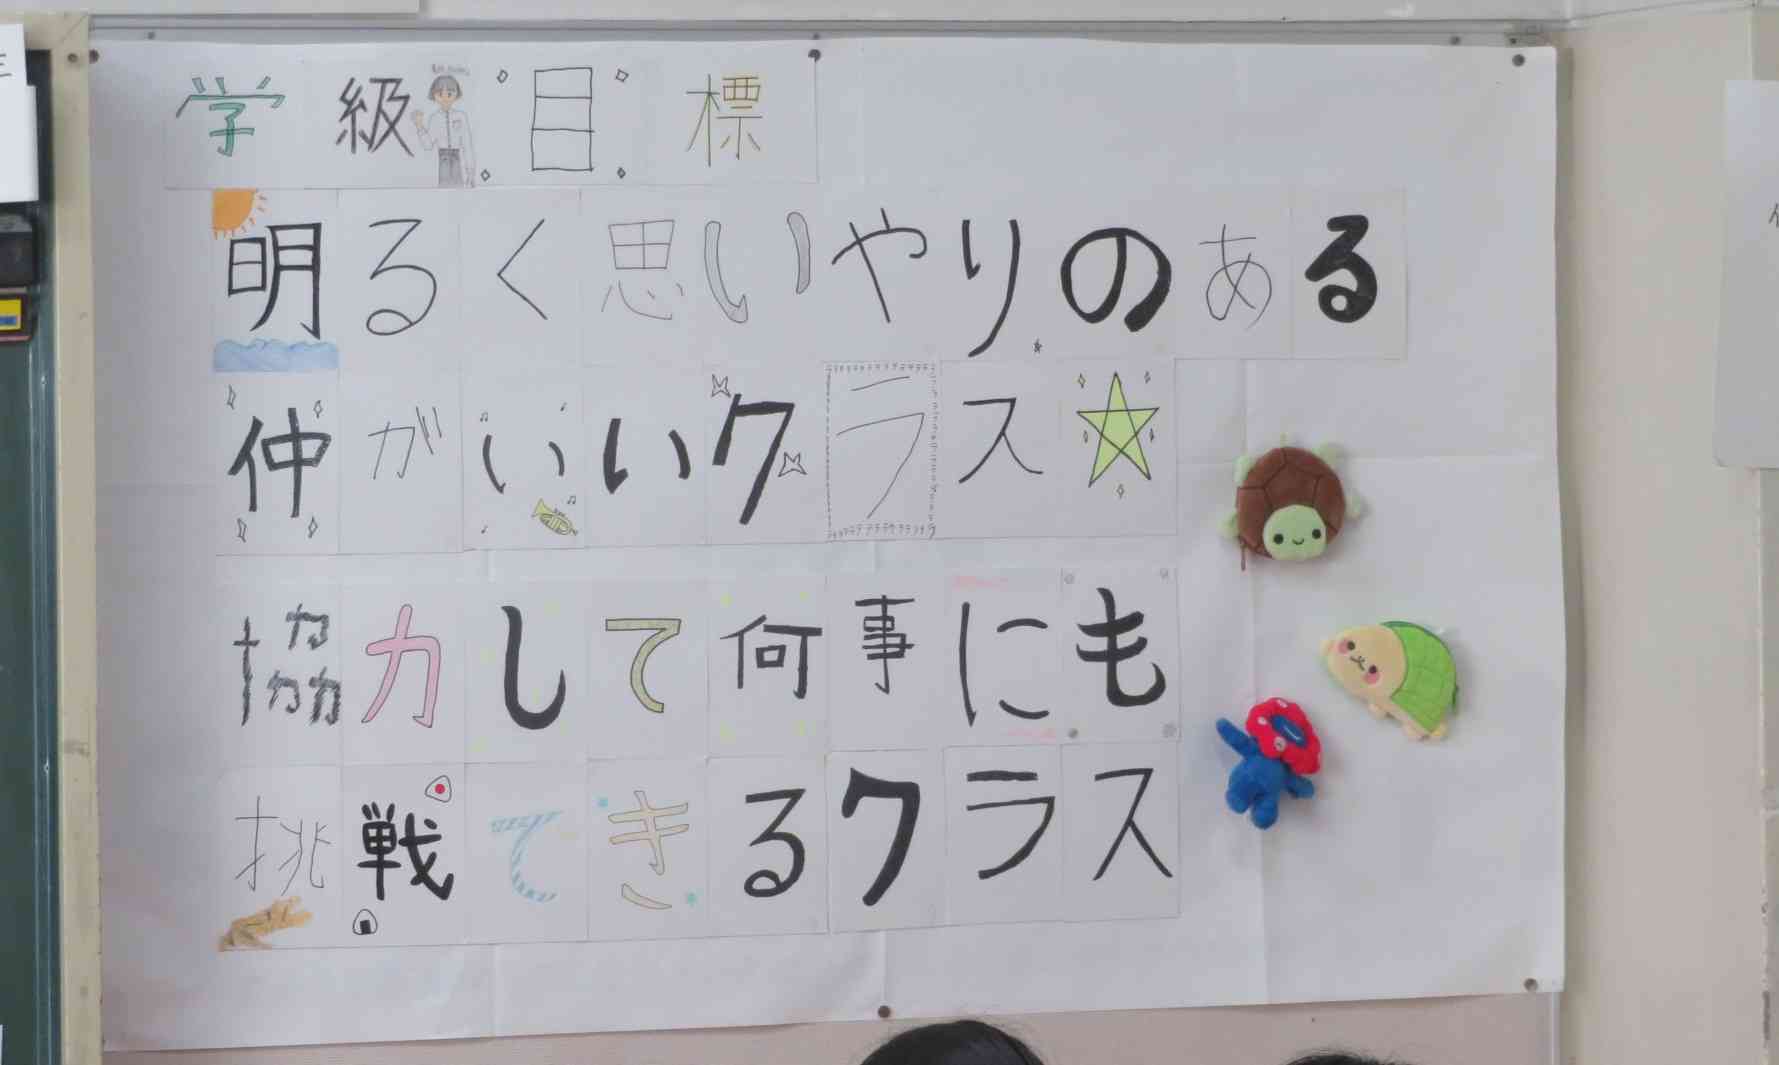 学級目標
明るく思いやりのある
仲がいいクラス
協力して何事にも
挑戦できるクラス